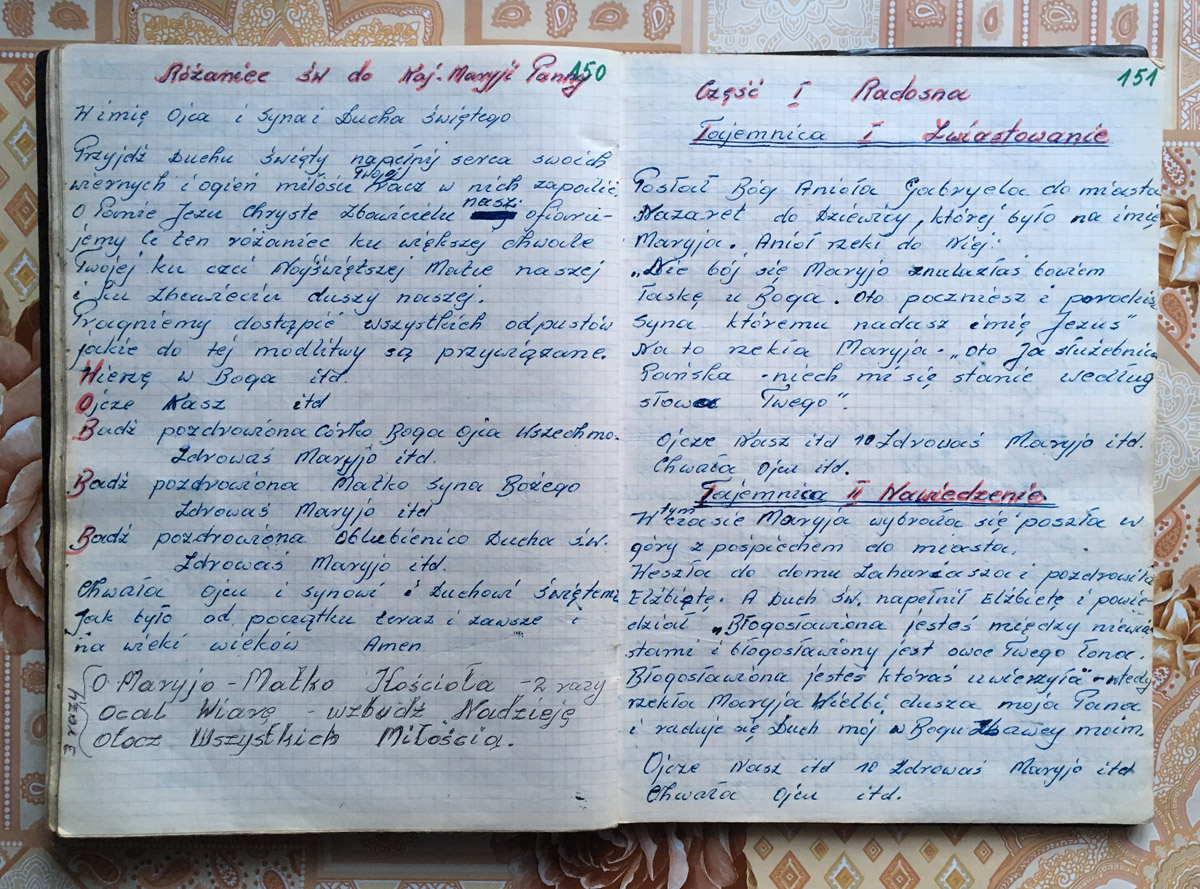 Różaniec św do Naj-Maryji Panny 150
W imię Ojca i Syna i Ducha świętego
Przyjdź Duchu Święty napełnij serca swoich
wiernych i ogień miłości Twojej racz w nich zapalić.
O Panie Jezu Chryste Zbawicielu nasz ofiaru-
jemy Ci ten różaniec ku większej chwale
Twojej ku czci Najświętszej Matce naszej
i ku zbawieciu duszy naszej.
Pragniemy dostąpić wszystkich odpustów
jakie do tej modlitwy są przywiązane.
Wierzę w Boga itd.
Ojcze Nasz itd
Badź pozdrowiona Córko Boga Ojca Wszechmo.
Zdrowaś Maryjo itd.
Badź pozdrowiona Matko Syna Bożego
Zdrowaś Maryjo itd
Badź pozdrowiona Oblubienico Ducha św.
Zdrowaś Maryjo itd.
Chwała Ojcu i synowi i Duchowi świętemu
Jak było od początku teraz i zawsze i
na wieki wieków Amen
3 razy
O Maryjo - Matko Kościoła - 2 razy
Ocal Wiarę - wzbudź Nadzieję
Otocz Wszystkich Miłością.
151
Część I Radosna
Tajemnica I Zwiastowanie
Posłał Bóg Anioła Gabryela do miasta
Nazaret do Dziewicy, której było na imię
Maryja. Anioł rzekł do Niej:
„Nie bój się Maryjo znalazłaś bowiem
łaskę u Boga. Oto poczniesz i porodzisz
Syna któremu nadasz imię Jezus"
Na to rzekła Maryja - „oto Ja służebnica
Pańska - niech mi się stanie według
słowa Twego".
Ojcze Nasz itd 10 Zdrowaś Maryjo itd.
Chwała Ojcu itd.
Tajemnica II Nawiedzenie
W tym czasie Maryja wybrała się poszła w
góry z pośpiechem do miasta.
Weszła do domu Zahariasza i pozdrowiła
Elżbietę. A Duch Św. napełnił Elżbietę i powie-
dział „Błogosławiona jesteś między niewia-
stami i błogosławiony jest owoc Twego łona.
Błogosławiona jesteś któraś uwierzyła" - wtedy
rzekła Maryja Wielbi dusza moja Pana
i raduje się Duch mój w Bogu Zbawcy moim.
Ojcze Nasz itd 10 Zdrowaś Maryjo itd
Chwała Ojcu itd.